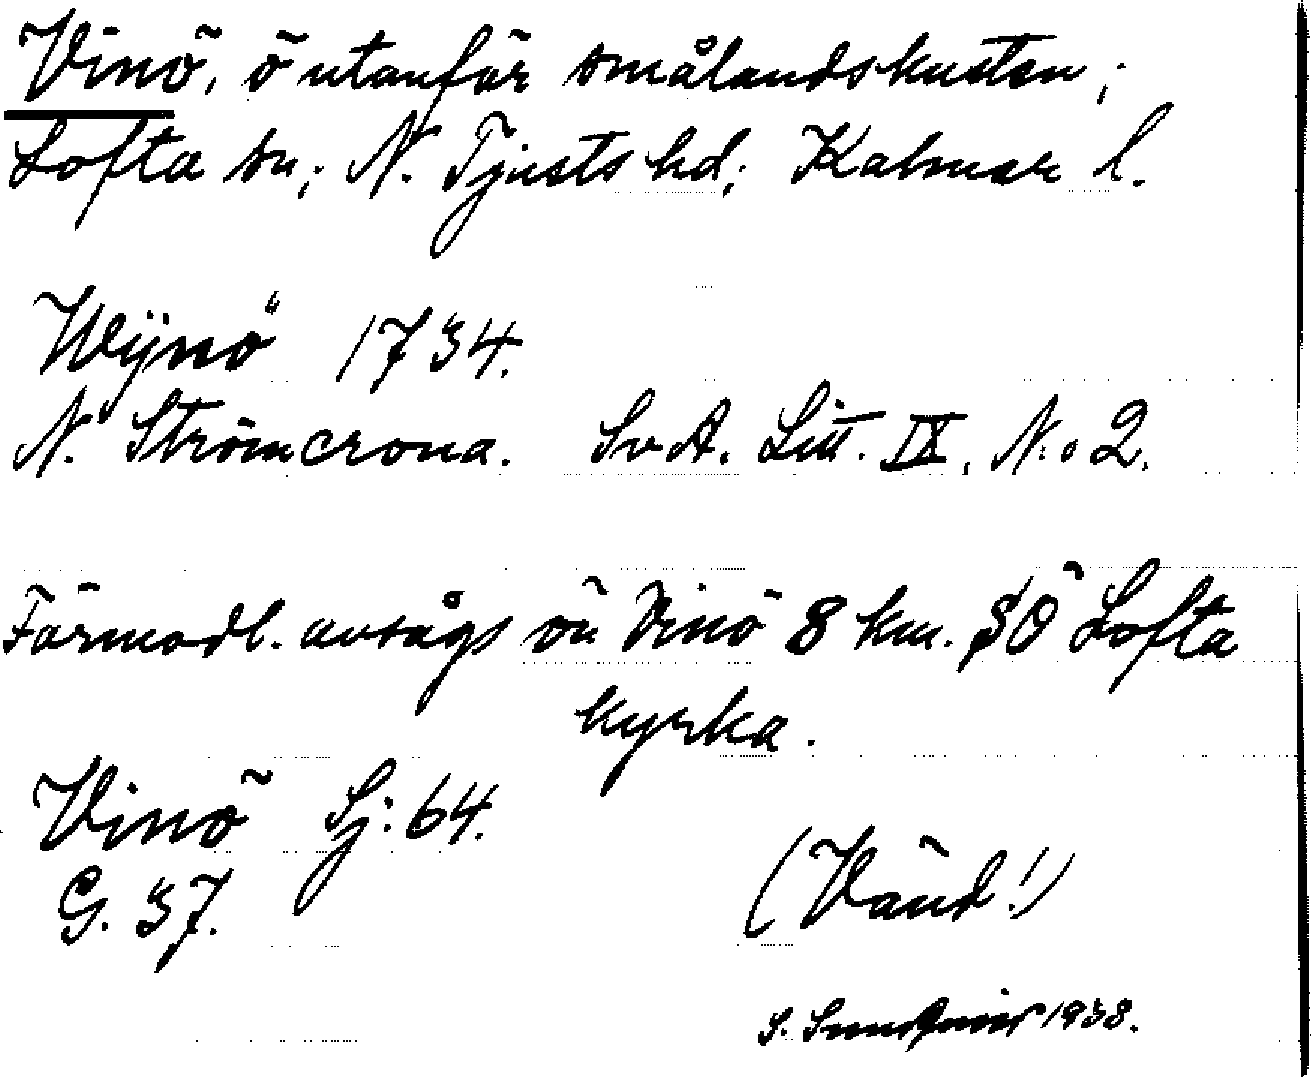 Vinö, ö utanför smålandskusten;
Lofta sn; N. Tjusts hd; Kalmar l.
Wÿnö 1734.
N. Strömcrona. SvA. Litt. IX, N:o 2.
Förmodl. avsågs ön Vinö 8 km. SO Lofta
kyrka.
Vinö Sj: 64.
G. 37.
(Vänd!)
S. 1938.